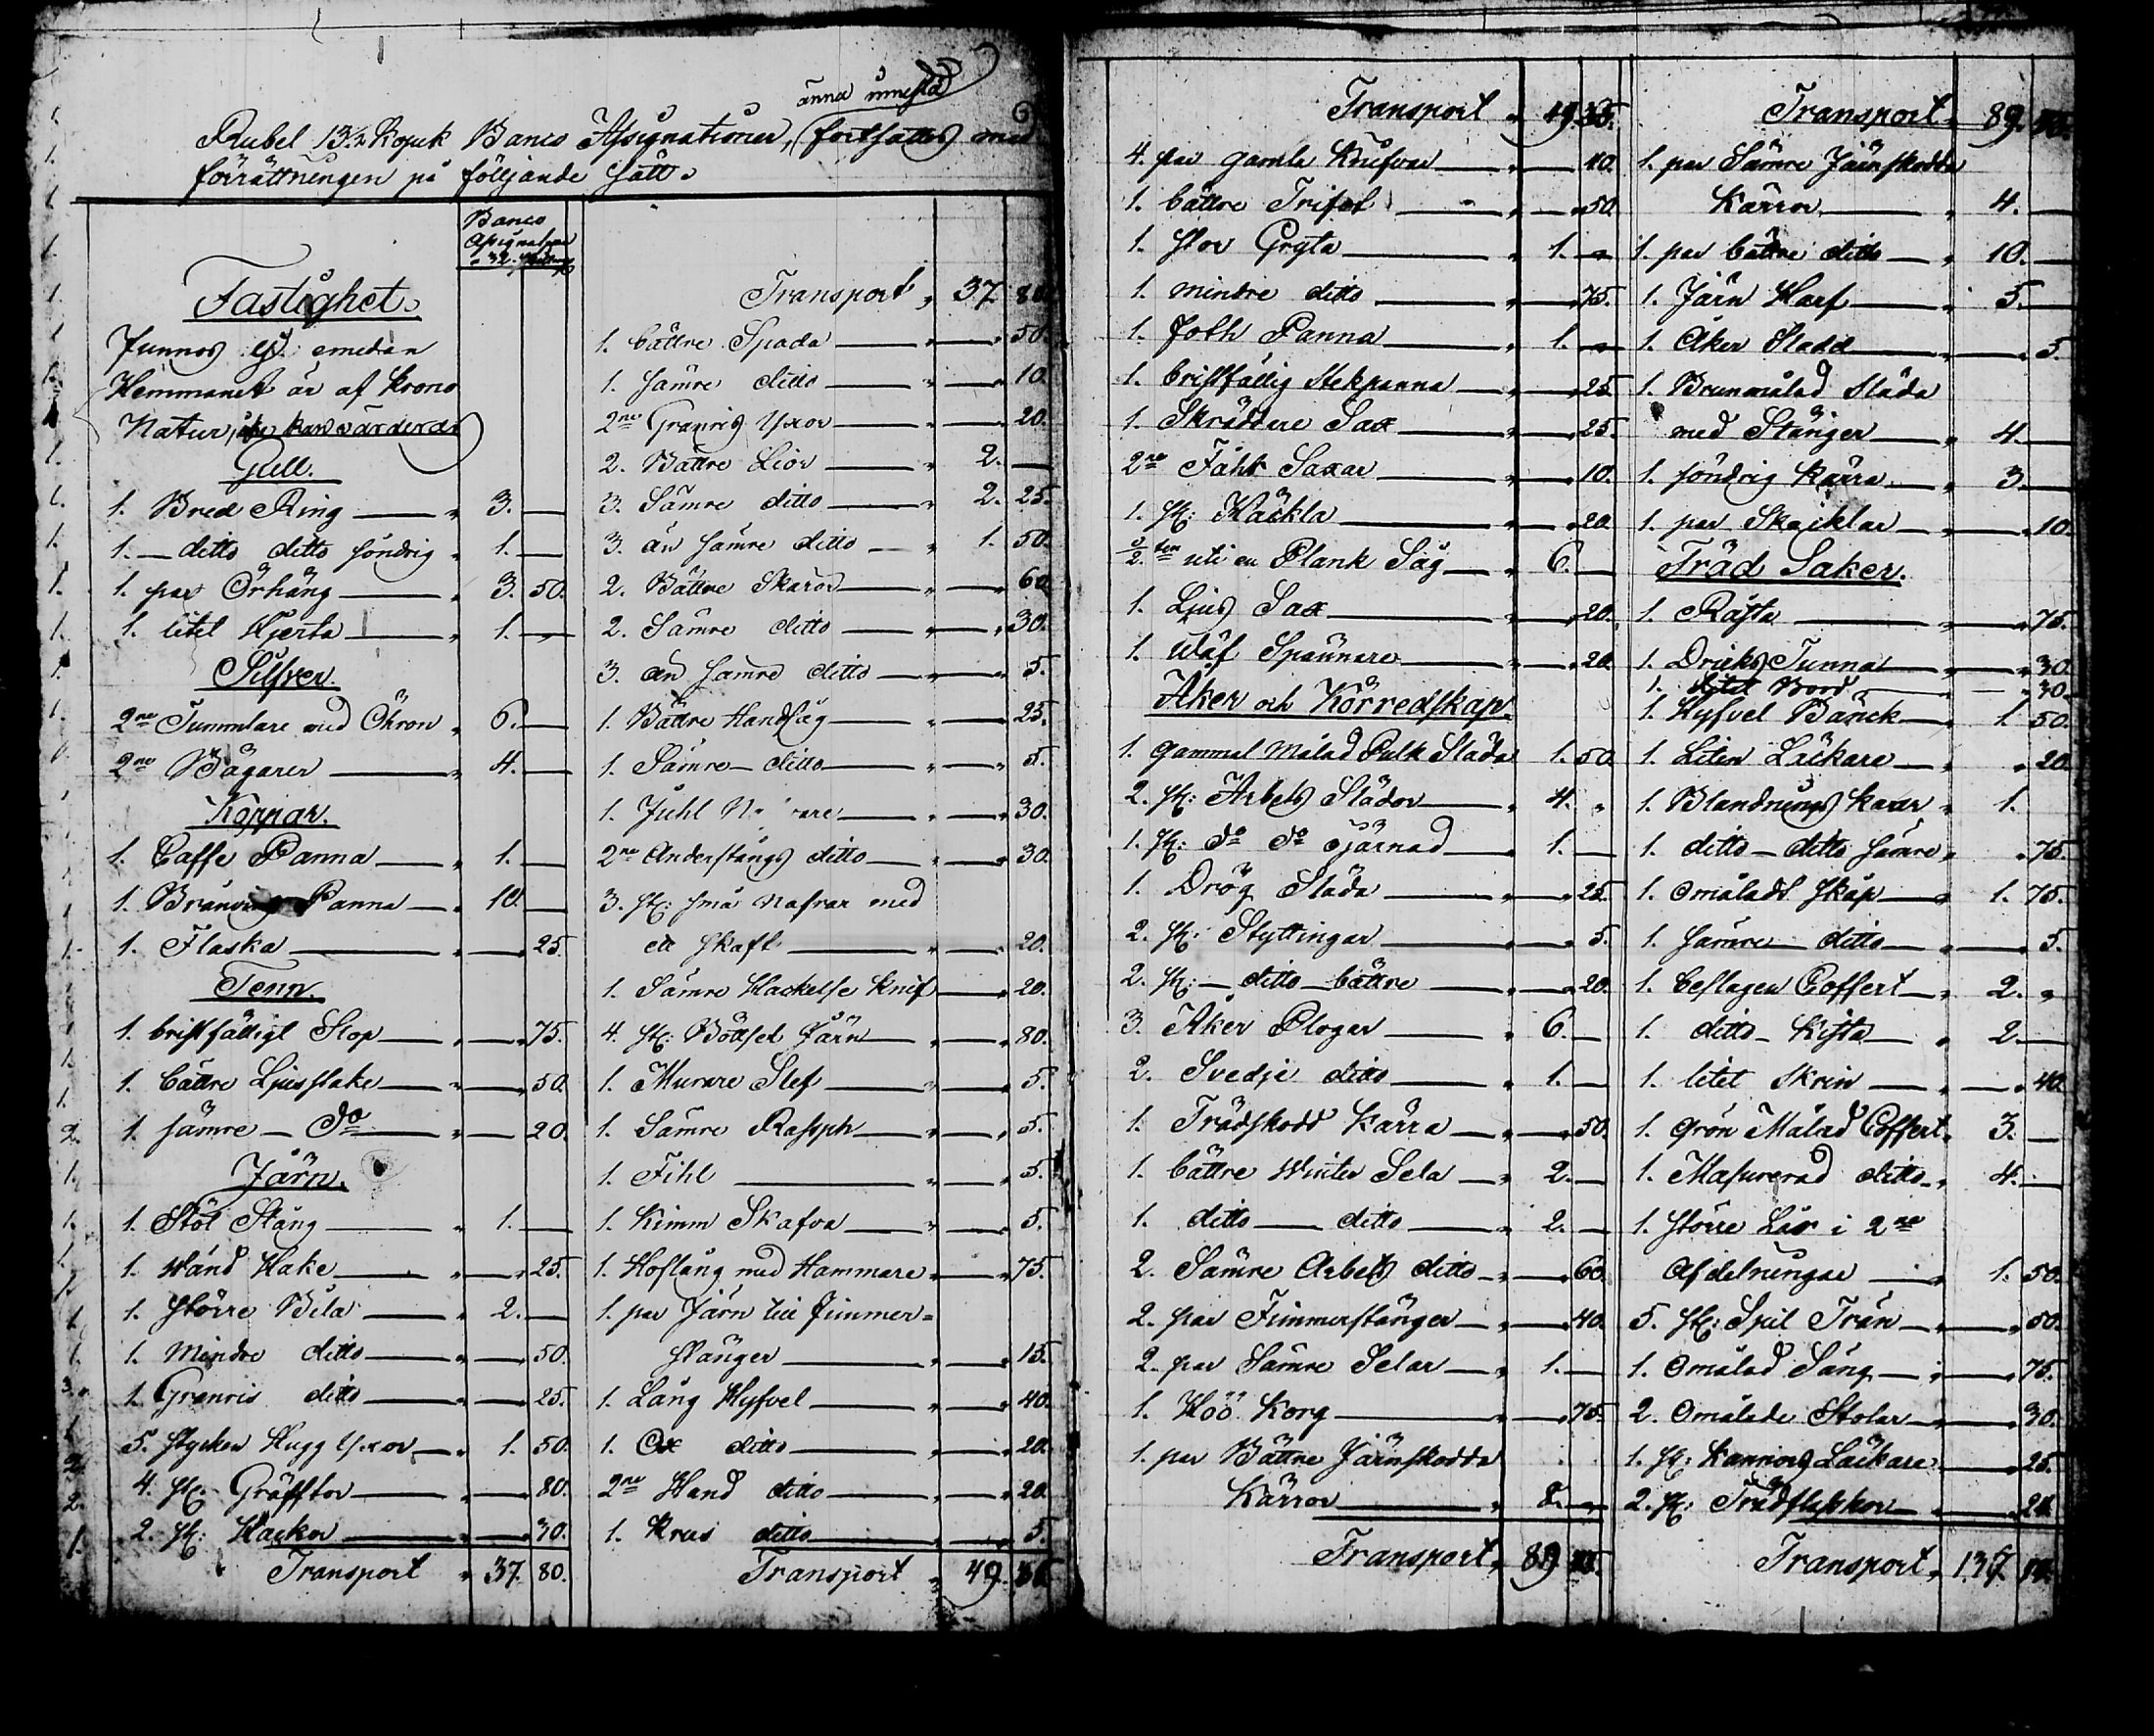 änna innestå
Rubel 13 1/2 Kopek Banco Assignationer, fortsattes med
förrättningen på följande sätt.
Banco
Assignationer
Fastighet.
Funnos ej emedan
Hemmanet är af Krono
Natur, icke kan värderas
Gull.
1. Bred Ring — " 3. —
1. — ditto ditto söndrig " 1. —
1. par Örhäng — " 3. 50.
1. litet Hjerta — " 1. —
Silfver.
2ne Tummlare med Öhron " 6. —
2ne Bägarer — " 4. —
Koppar.
1. Caffe Panna — " 1. —
1. Bränvins Panna — " 10. —
1. Flaska — " — 25.
Tenn.
1. bristfälligt Stop — " — 75.
1. bättre Ljusstake — " — 50.
1. sämre — do — " — 20.
Järn.
1. Stöt Stång — " 1. —
1. Hand Hake — " — 25.
1. större Bila — " 2. —
1. Mindre ditto — " — 50.
1. Granris ditto — " — 25.
5. stycken Hugg Yxor — " 1. 50.
4. st: Gräfftor — " — 80.
2. st: Hackor — " — 30.
Transport " 37. 80.
Transport " 37. 80.
1. bättre Spada — " — 50.
1. sämre ditto — " — 10.
2ne Granris Yxor — " — 20.
2. Bättre Lior — " 2. —
3. Sämre ditto — " 2. 25.
3. än sämre ditto — " 1. 50.
2. Bättre Skäror — " — 60.
2. Sämre ditto — " — 30.
3. än sämre ditto — " — 5.
1. Bättre Handsåg — " — 25.
1. Sämre — ditto — " — 5.
1. Juhl — " — 30.
2ne Anderstångs ditto — " — 30.
3. st: små Nafrar med
ett skaft — " — 20.
1. Sämre Hackelse Knif — " — 20.
4. st: Böttsel Järn — " — 80.
1. Murare Slef — " — 5.
1. Sämre Rassph — " — 5.
1. Fihl — " — 5.
1. Kimm Skafva — " — 5.
1. Hoftång med Hammare — " — 75.
1. par Järn till Fimmer=
stänger — " — 15.
1. Lång Hyfvel — " — 40.
1. Ox ditto — " — 20.
2ne Hand ditto — " — 20.
1. Krus ditto — " — 5.
Transport " 49.
Transport " 49.
4. par gamla Knifvar — " — 40.
1. bättre Trifot — " — 50.
1. stor Gryta — " 1. —
1. mindre ditto — " — 75.
1. foth Panna — " 1. —
1. bristfällig Stekpanna — " — 25.
1. Skräddere Sax — " — 25.
2ne Fåhr Saxar — " — 10.
1. st: Häckla — " — 20.
uti en Plank Såg — " 6. —
1. Ljus Sax — " — 20.
1. Wäf Spännare — " — 20.
Åker och Körredskap.
1. gammal Målad Pulk Släda 1. 50.
2. st: Arbets Slädor — " 4. "
1. st: do do Tjärnad — " 1. —
1. Drög Släda — " — 25.
2. st: Styttingar — " — 5.
2. st: — ditto — bättre — " — 20.
3. Åker Plogar — " 6. —
2. Svedje ditto — " 1. —
1. Trädskodd Kärra — " — 50.
1. bättre Winter Sela — " 2. —
1. ditto — ditto — " 2. —
2. Sämre Arbets ditto — " — 60.
2. par Fimmerstänger — " — 40.
2. par Sämre Selar — " 1. —
1. Höö Korg — " — 75.
1. par Bättre Järnskodda
Kärror — " 8. —
Transport " 89.
Transport " 89.
1. par Sämre Järnskodda
Kärror — " 4. —
1. par bättre ditto — " 10. —
1. Järn Harf — " 5. —
1. Åker Sladd — " — 5.
1. Brunmålad Släda
med Stänger — " 4. —
1. söndrig Kärra — " 3. —
1. par Skacklar — " — 10.
Träd Saker.
1. Råsta — " — 75.
1. Dricks Tunna — " — 30.
1. litet Bord — " — 30.
1. Hyfvel Bänck — " 1. 50.
1. Liten Läckare — " " 20.
1. Blandnings Karar " 1.
1. ditto — ditto sämre " " 75.
1. omåladt skåp — " 1. 75.
1. sämre — ditto — " — 5.
1. beslagen Coffert — " 2. "
1. ditto — Kista — " 2. —
1. litet Skrin — " — 40.
1. Grön Målad Coffert " 3. —
1. Masurerad ditto — " 4. —
1. större Lår i 2ne
Afdelningar — " 1. 50.
5. st: Spil Trän — " — 50.
1. omålad Säng — " — 75.
2. omålade Stolar — " — 30.
1. st: Kannors Läckare — 25.
2. st: — 20.
Transport " 137.